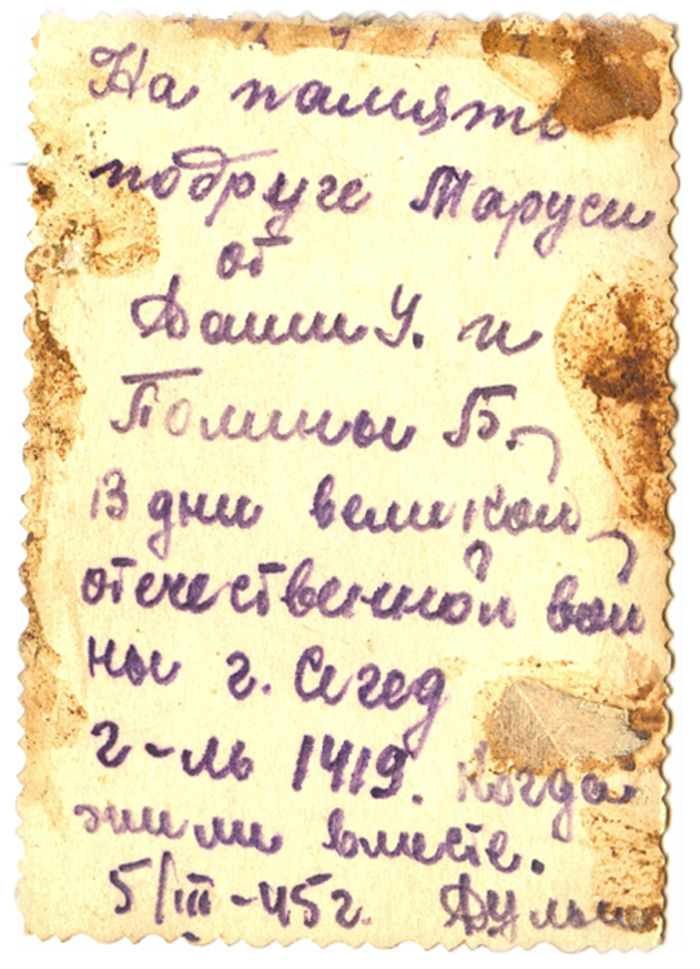 На память
подруге Маруси
от
Даши У. и
Полины Б.
В дни великой
отечественной вой
ны г. Сегед
г-ль 1419. Когда
жили вместе.
5/III-45г.